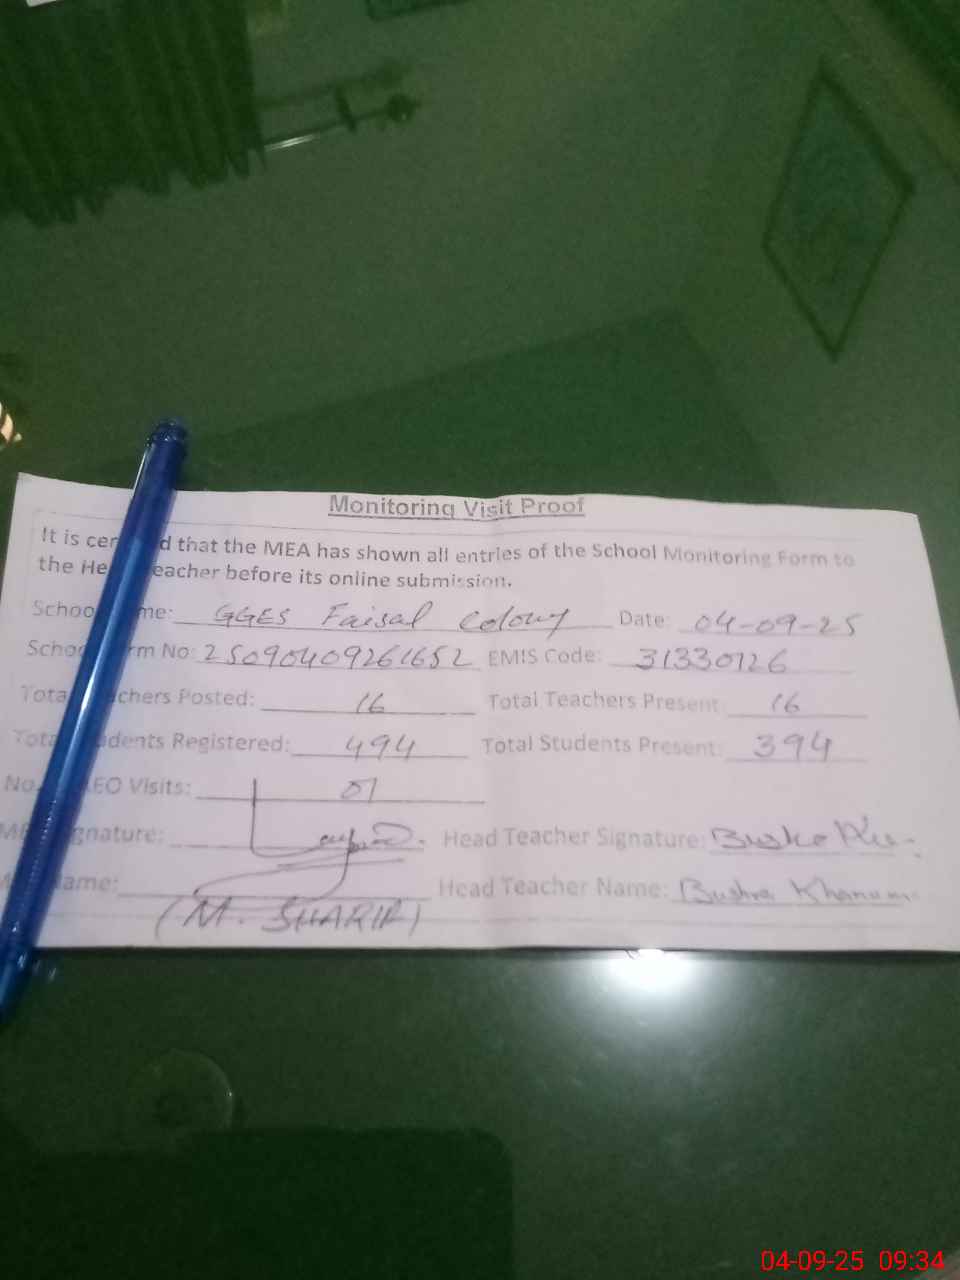 Monitoring Visit Proof
It is cer d that the MEA has shown all entries of the School Monitoring Form to
the He eacher before its online submission.
Schoo me: GGES Faisal Colony Date: 04-09-25
Schoo rm No: 25090409261652 EMIS Code: 31330126
Tota chers Posted: 16 Total Teachers Present: 16
Tota udents Registered: 494 Total Students Present: 394
No. AEO Visits: 01
ME gnature: Head Teacher Signature:
ame: Head Teacher Name: Bushra Khanum
(M. SHARIF)
04-09-25 09:34